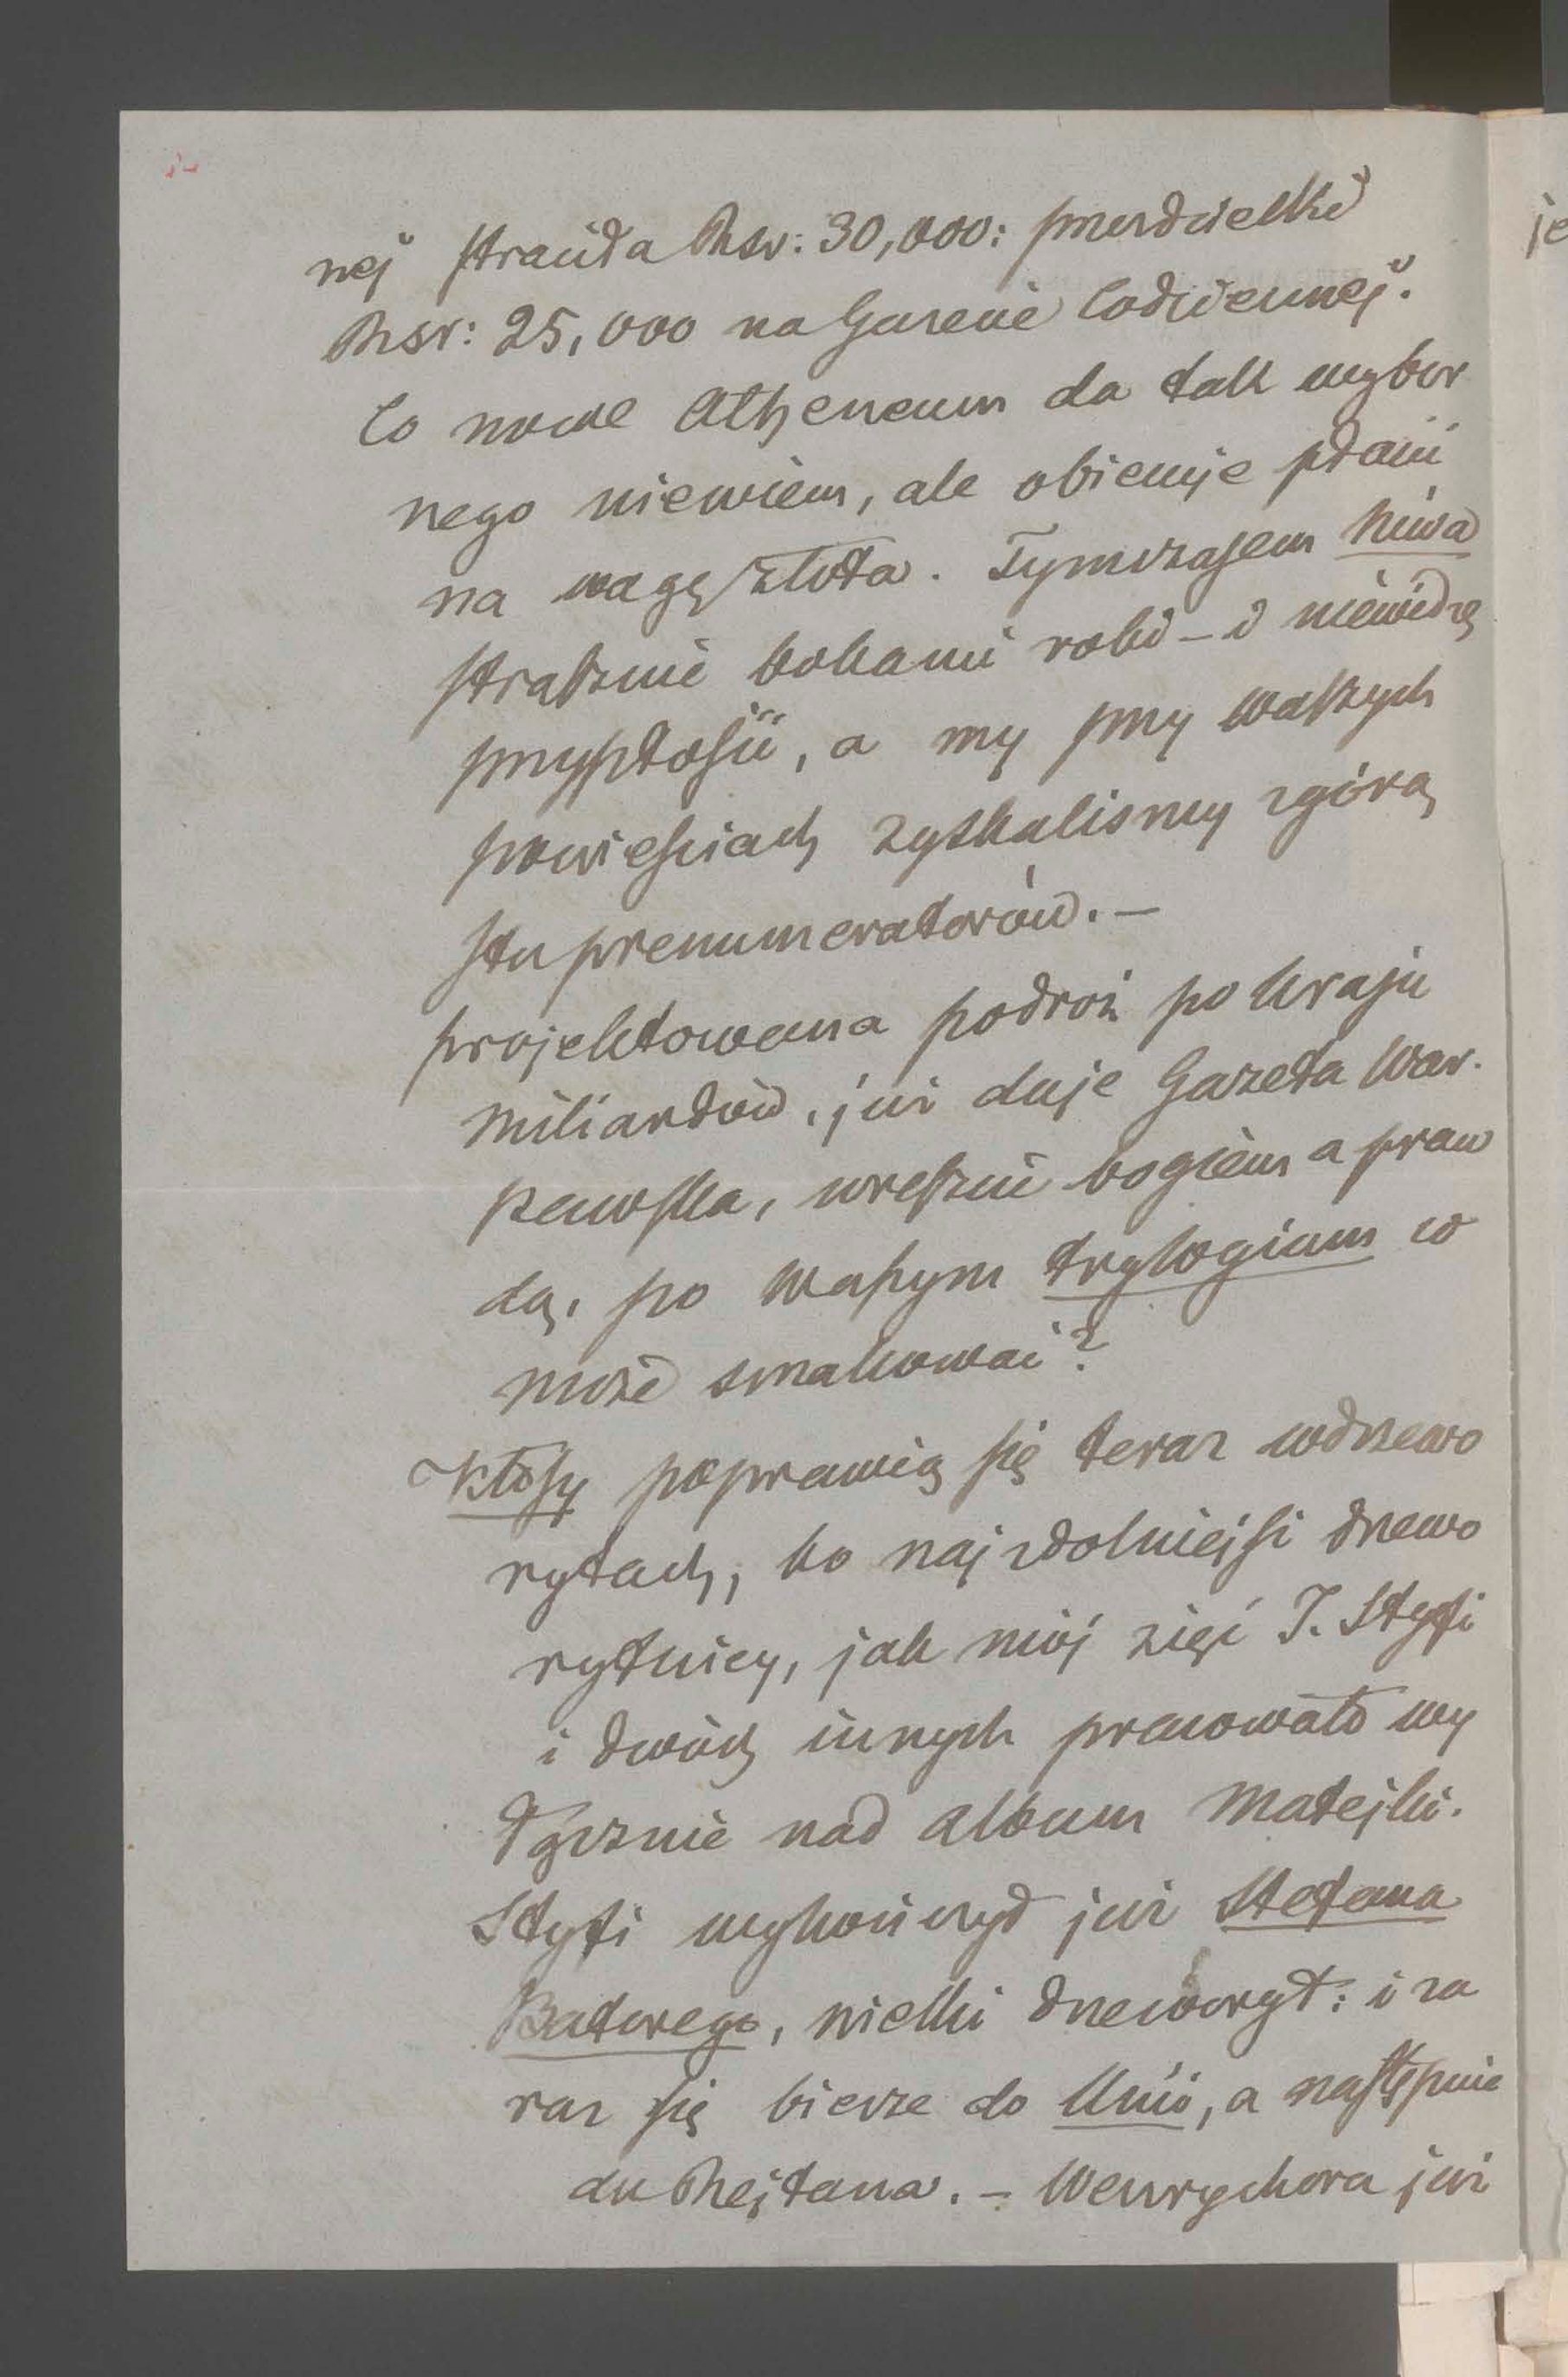 nej stracił Rsr: 30,000: przeszło wielki
Rsr: 25,000 na Gazecie Codziennej.
Co nowe Atheneum da tak wybor
nego niewiem, ale obiecuje płacić
na wagę złota. Tymczasem Niwa
strasznie bokami robi – i niewidzę
przyszłości, a my przy waszych
powieściach zyskaliśmy zgórą
stu prenumeratorów. –
projektowana podróż po kraju
miliardów, już daje Gazeta War.
szawska, wreszcie bogiem a praw
dą, po waszym trylogium co
może smakować?
Kłosy poprawią się teraz w drzewo
rytach, bo najzdolniejsi drzewo
rytnicy, jak mój zięć J. Styfi
i dwóch innych pracowało wy
łącznie nad album Matejki.
Styfi wykończył już Stefana
Batorego, wielki drzeworyt: i za
raz się bierze do Unii, a następnie
do Rejtana. – Wernychora już
je